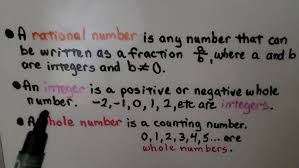 • A rational number is any number that can
be written as a fraction a/b, where a and b
are integers and b≠0.
• An integer is a positive or negative whole
number. -2,-1, 0, 1, 2, etc are integers.
• A whole number is a counting number.
0, 1, 2, 3, 4, 5... are
whole numbers.